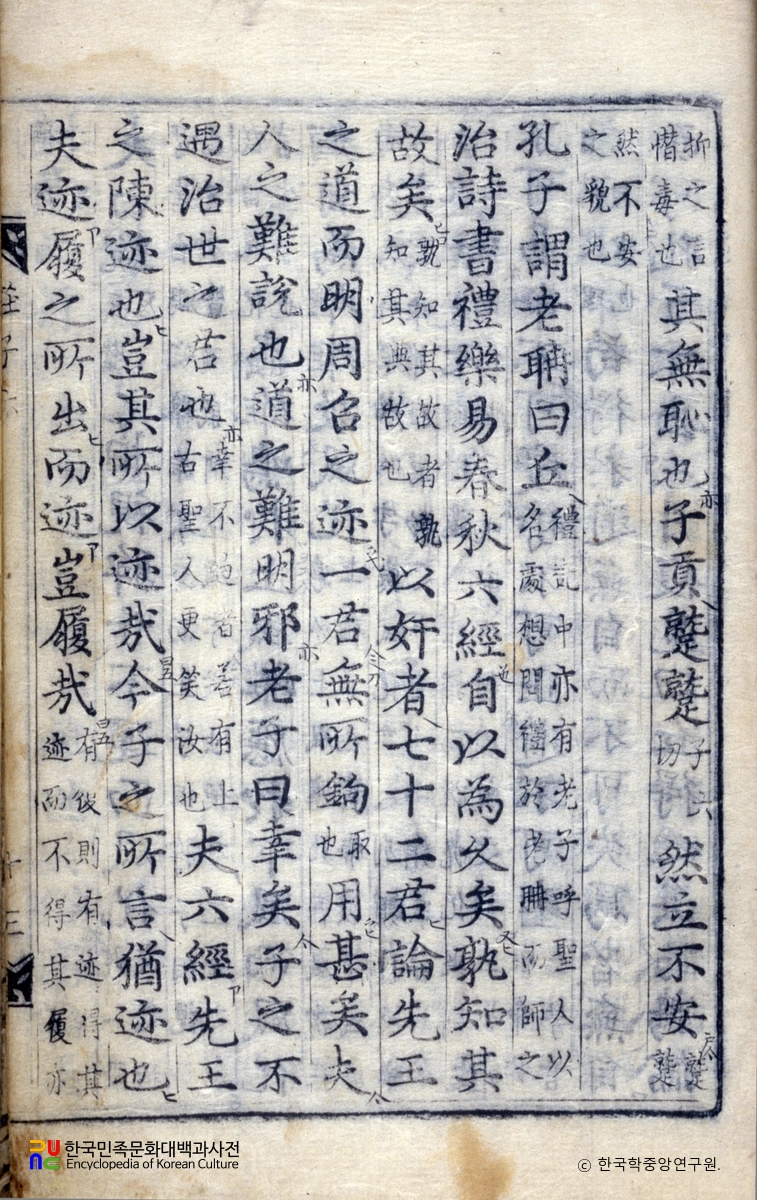 抑之言
憯毒也其無恥也子貢蹵蹵子六
切然立不安蹵蹵
然不安
之貌也
孔子謂老聃曰丘禮記中亦有老子呼聖人以
名處想聞禮於老聃而師之
治詩書禮樂易春秋六經自以為久矣孰知其
故矣孰知其故者孰
知其典故也以奸者七十二君論先王
之道而明周召之迹一君無所鉤取
也用甚矣夫
人之難說也道之難明邪老子曰幸矣子之不
遇治世之君也幸不遇者若有上
古聖人更笑汝也夫六經先王
之陳迹也豈其所以迹哉今子之所言猶迹也
夫迹履之所出而迹豈履哉有履則有迹得其
迹而不得其履亦
莊子六
十三
한국민족문화대백과사전
Encyclopedia of Korean Culture
ⓒ 한국학중앙연구원.